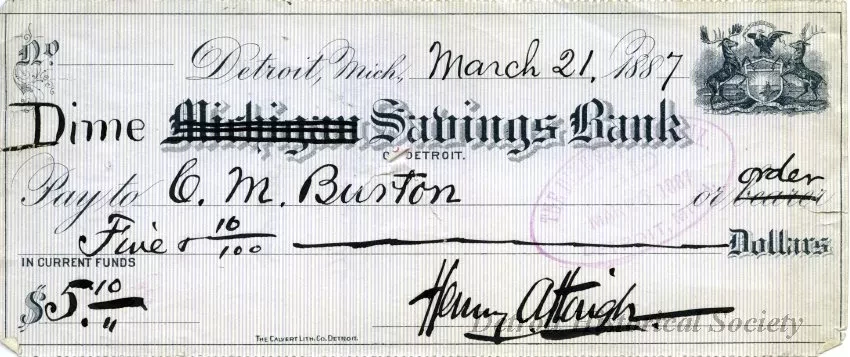 No
Detroit, Mich, March 21, 1887
Dime Michigan Savings Bank
OF DETROIT.
Pay to C. M. Burton or order bearer
Five & 10/100 Dollars
IN CURRENT FUNDS
$5.10/"
Henry A Haigh
Detroit Historical Society
THE CALVERT LITH. CO. DETROIT.